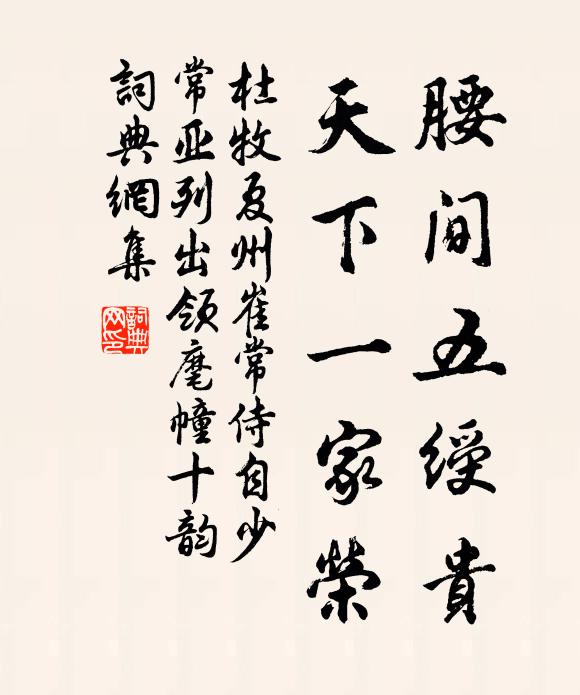 腰間五綬貴
天下一家榮
杜牧夏州崔常侍自少
常亚列出領麾幢十韵
詞典網集
詞典网印